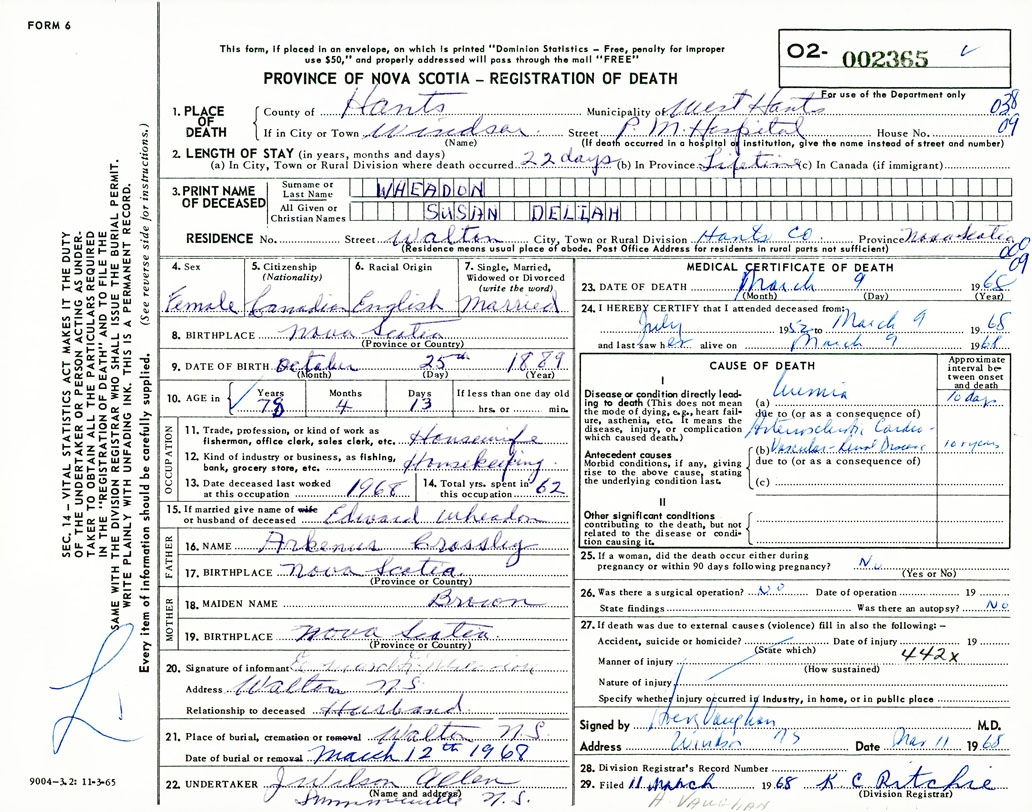 FORM 6
This form, if placed in an envelope, on which is printed "Dominion Statistics – Free, penalty for improper
use $50," and properly addressed will pass through the mail "FREE"
PROVINCE OF NOVA SCOTIA – REGISTRATION OF DEATH
O2- 002365
For use of the Department only
038
09
1. PLACE OF DEATH
County of Hants Municipality of West Hants
If in City or Town Windsor Street P. M. Hospital House No.
(Name) (If death occurred in a hospital or institution, give the name instead of street and number)
2. LENGTH OF STAY (in years, months and days)
(a) In City, Town or Rural Division where death occurred 22 days (b) In Province Lifetime (c) In Canada (if immigrant)
3. PRINT NAME OF DECEASED
Surname or Last Name WHEADON
All Given or Christian Names SUSAN DELIAH
RESIDENCE No. Street Walton City, Town or Rural Division Hants Co. Province Nova Scotia
(Residence means usual place of abode. Post Office Address for residents in rural parts not sufficient)
000
09
4. Sex Female
5. Citizenship (Nationality) Canadian
6. Racial Origin English
7. Single, Married, Widowed or Divorced (write the word) Married
8. BIRTHPLACE Nova Scotia
(Province or Country)
9. DATE OF BIRTH October 25th 1889
(Month) (Day) (Year)
10. AGE in Years 78 Months 4 Days 13 If less than one day old hrs. or min.
OCCUPATION
11. Trade, profession, or kind of work as fisherman, office clerk, sales clerk, etc. Housewife
12. Kind of industry or business, as fishing, bank, grocery store, etc. Housekeeping
13. Date deceased last worked at this occupation 1968
14. Total yrs. spent in this occupation 62
15. If married give name of wife or husband of deceased Edward Wheadon
FATHER
16. NAME Arkenus Crossley
17. BIRTHPLACE Nova Scotia
(Province or Country)
MOTHER
18. MAIDEN NAME Brown
19. BIRTHPLACE Nova Scotia
(Province or Country)
20. Signature of informant
Address Walton N.S.
Relationship to deceased Husband
21. Place of burial, cremation or removal Walton N.S.
Date of burial or removal March 12th 1968
22. UNDERTAKER J Wilson Allen
(Name and address) N.S.
9004–3.2: 11-3-65
MEDICAL CERTIFICATE OF DEATH
23. DATE OF DEATH March 9 1968
(Month) (Day) (Year)
24. I HEREBY CERTIFY that I attended deceased from:
July 1952 to March 9 1968
and last saw her alive on March 9 1968
CAUSE OF DEATH
Approximate interval between onset and death
I
Disease or condition directly leading to death (This does not mean the mode of dying, e.g., heart failure, asthenia, etc. It means the disease, injury, or complication which caused death.)
(a) Uremia 10 days
due to (or as a consequence of)
Arteriosclerotic Cardio-
(b) Vascular-Renal Disease 10 years
Antecedent causes
Morbid conditions, if any, giving rise to the above cause, stating the underlying condition last.
due to (or as a consequence of)
(c)
II
Other significant conditions
contributing to the death, but not related to the disease or condition causing it.
25. If a woman, did the death occur either during pregnancy or within 90 days following pregnancy? No
(Yes or No)
26. Was there a surgical operation? No Date of operation 19
State findings Was there an autopsy? No
27. If death was due to external causes (violence) fill in also the following: –
Accident, suicide or homicide? Date of injury 19
(State which)
Manner of injury 442x
(How sustained)
Nature of injury
Specify whether injury occurred in industry, in home, or in public place
Signed by Vaughan M.D.
Address Windsor NS Date Mar 11 1968
28. Division Registrar's Record Number
29. Filed 11 March 1968 K C Ritchie
(Division Registrar)
H. VAUGHAN
SEC. 14 – VITAL STATISTICS ACT MAKES IT THE DUTY
OF THE UNDERTAKER OR PERSON ACTING AS UNDER-
TAKER TO OBTAIN ALL THE PARTICULARS REQUIRED
IN THE "REGISTRATION OF DEATH" AND TO FILE THE
SAME WITH THE DIVISION REGISTRAR WHO SHALL ISSUE THE BURIAL PERMIT.
WRITE PLAINLY WITH UNFADING INK. THIS IS A PERMANENT RECORD.
Every item of information should be carefully supplied. (See reverse side for instructions.)